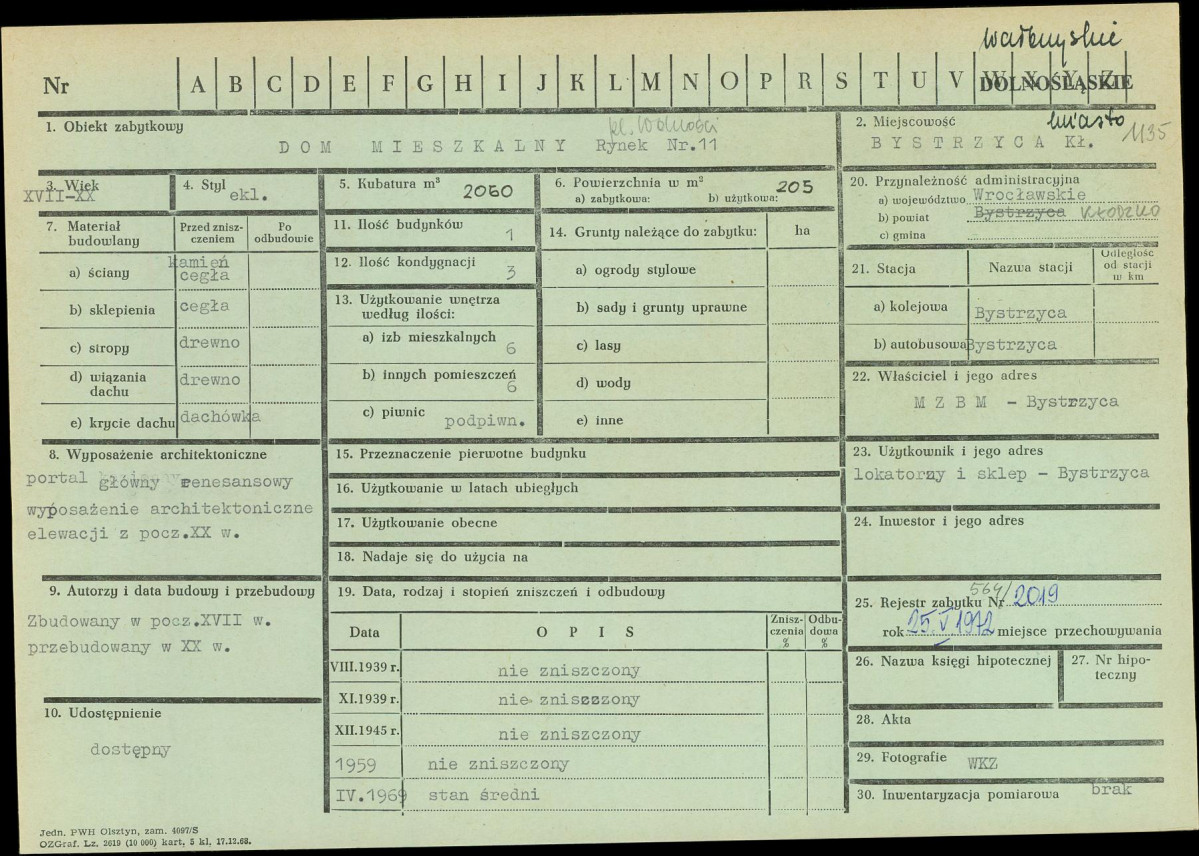 wałbrzyskie
Nr A B C D E F G H I J K L M N O P R S T U V W X Y Z
DOLNOŚLĄSKIE
1. Obiekt zabytkowy
pl. Wolności
DOM MIESZKALNY Rynek Nr.11
2. Miejscowość
miasto 1135
BYSTRZYCA KŁ.
3. Wiek
XVII-XX
4. Styl
ekl.
5. Kubatura m³
2060
6. Powierzchnia w m²
a) zabytkowa: b) użytkowa:
205
7. Materiał budowlany
Przed zniszczeniem
Po odbudowie
a) ściany kamień cegła
b) sklepienia cegła
c) stropy drewno
d) wiązania dachu drewno
e) krycie dachu dachówka
8. Wyposażenie architektoniczne
portal główny renesansowy
wyposażenie architektoniczne
elewacji z pocz.XX w.
9. Autorzy i data budowy i przebudowy
Zbudowany w pocz.XVII w.
przebudowany w XX w.
10. Udostępnienie
dostępny
11. Ilość budynków
1
12. Ilość kondygnacji
3
13. Użytkowanie wnętrza
według ilości:
a) izb mieszkalnych
6
b) innych pomieszczeń
6
c) piwnic podpiwn.
14. Grunty należące do zabytku: ha
a) ogrody stylowe
b) sady i grunty uprawne
c) lasy
d) wody
e) inne
15. Przeznaczenie pierwotne budynku
16. Użytkowanie w latach ubiegłych
17. Użytkowanie obecne
18. Nadaje się do użycia na
19. Data, rodzaj i stopień zniszczeń i odbudowy
Data OPIS Zniszczenia % Odbudowa %
VIII.1939 r. nie zniszczony
XI.1939 r. nie zniszzzony
XII.1945 r. nie zniszczony
1959 nie zniszczony
IV.1969 stan średni
20. Przynależność administracyjna
a) województwo Wrocławskie
b) powiat Bystrzyca KŁODZKO
c) gmina
21. Stacja Nazwa stacji Odległość od stacji w km
a) kolejowa Bystrzyca
b) autobusowa Bystrzyca
22. Właściciel i jego adres
MZBM - Bystrzyca
23. Użytkownik i jego adres
lokatorzy i sklep - Bystrzyca
24. Inwestor i jego adres
564/
25. Rejestr zabytku Nr 2019
rok 25.V 1972 miejsce przechowywania
26. Nazwa księgi hipotecznej
27. Nr hipoteczny
28. Akta
29. Fotografie WKZ
30. Inwentaryzacja pomiarowa brak
Jedn. PWH Olsztyn, zam. 4097/S
OZGraf. Lz. 2619 (10 000) kart, 5 kl, 17.12.68.